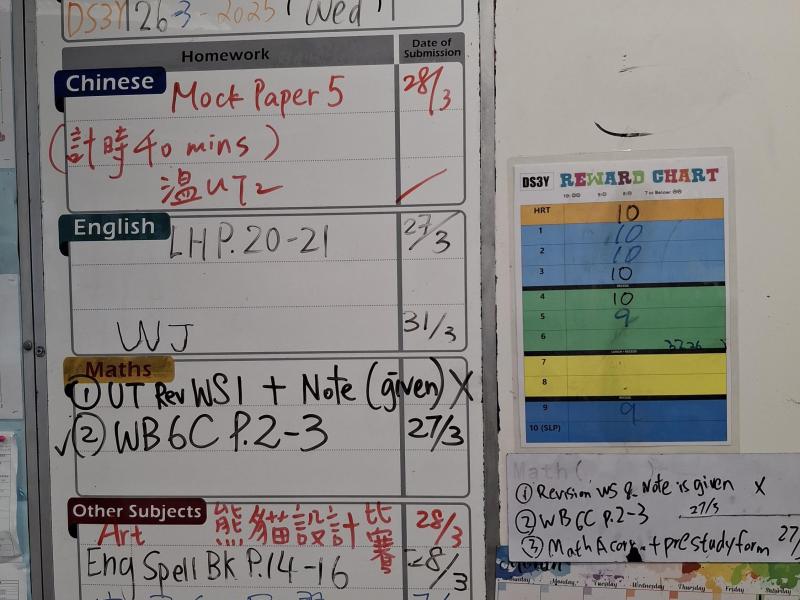 DS3Y 26-3-2025 Wed
Homework
Date of Submission
Chinese
Mock Paper 5 28/3
(計時40 mins)
溫UT2 ✓
English
LH P.20-21 27/3
WJ 31/3
Maths
① UT Rev WS1 + Note (given) X
✓② WB 6C P.2-3 27/3
Other Subjects
Art 熊貓設計比賽 28/3
Eng Spell Bk P.14-16 28/3
DS3Y REWARD CHART
HRT 10
1 10
2 10
3 10
4 10
5 9
6
7
8
9 9
10 (SLP)
Math (
① Revision WS & Note is given X
② WB 6C P.2-3 27/3
③ Math A corr. + pre study form 27/
Sunday Monday Tuesday Wednesday Thursday Friday Saturday